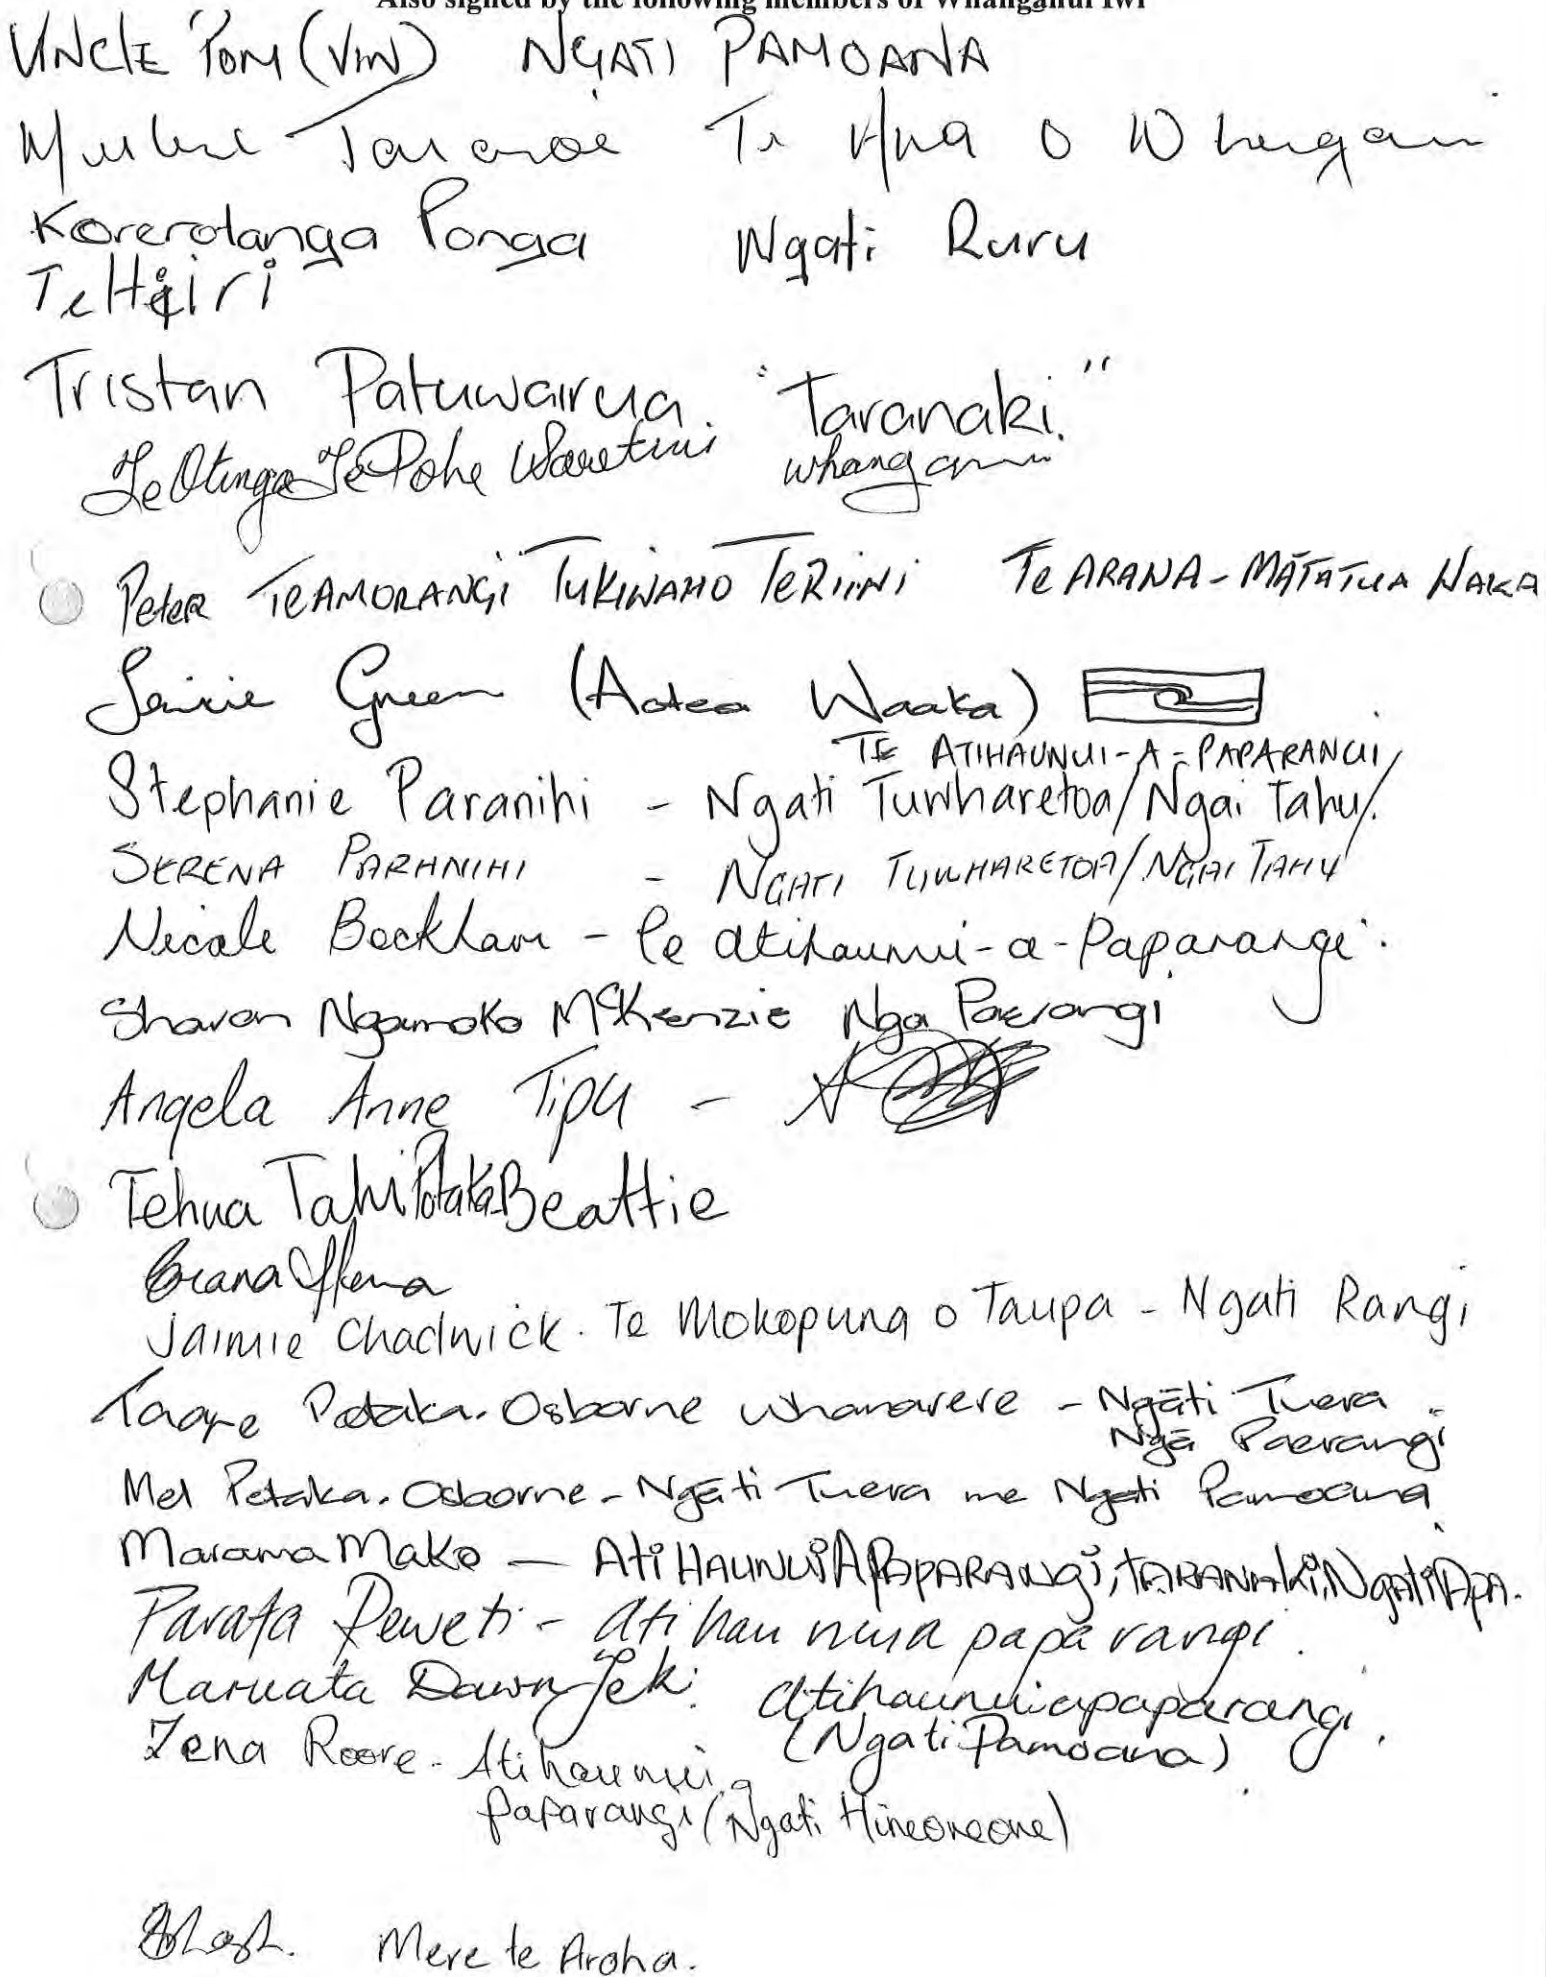 Also signed by the following members of Whanganui Iwi
UNCLE TOM (VIN) NGATI PAMOANA
Te Hua O
Korerotanga Ponga Ngati Ruru
Tristan Patuwairua. "Taranaki."
Te Pohe Waretini
Peter TEAMORANGI TUKIWAHO TERIINI TE ARANA - MĀTATUA WAKA
Green (Aotea Waaka)
TE ATIHAUNUI-A-PAPARANGI/
Stephanie Paranihi - Ngati Tuwharetoa/Ngai Tahu/.
SERENA PARANIHI - NGATI TUWHARETOA/NGAI TAHU
Nicole Beckham - Te Atihaunui-a-Paparangi.
Sharon Ngamoko McKenzie Nga Paerangi
Angela Anne Tipu -
Tehua Tahi Potaka Beattie
Jaimie Chadwick. Te Mokopuna o Taupa - Ngati Rangi
Potaka-Osborne Whanarere - Ngāti Tuera
Ngā Paerangi
Mel Potaka-Osborne - Ngāti Tuera me Ngati Pamoana
Marama Mako — Ati HAUNUI A PAPARANGi, TARANAKi, NgATi APA.
Parata Peweti - Atihau nuia paparangi.
Maruata Dawn Teki. Atihaunuiapaparangi.
(Ngati Pamoana)
Zena Roore - Atihaunui a
paparangi (Ngati Hineoneone)
Mere te Aroha.